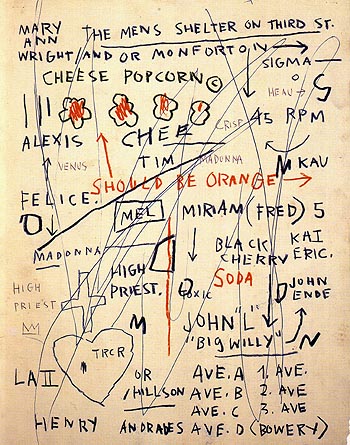 MARY
ANN
THE MENS SHELTER ON THIRD ST.
WRIGHT/AND OR MONFORTO IN
SIGMA
CHEESE POPCORN ©
HEAU
S
45 RPM
CRISP
ALEXIS
CHEE
VENUS
TIM
MADONNA
M KAU
SHOULD BE ORANGE
FELICE.
MEL
MIRIAM (FRED) 5
MADONNA
BLACK
CHERRY
KAI
ERIC.
HIGH
PRIEST.
SODA
HIGH
PRIEST
TOXIC
JOHN
ENDE
M
JOHN "L"
"BIG WILLY"
N
TRCR
LA II
OR
/HILLSON
AVE. A 1. AVE.
AVE. B 2. AVE
AVE. C 3. AVE
HENRY ANDRADES AVE. D (BOWERY)